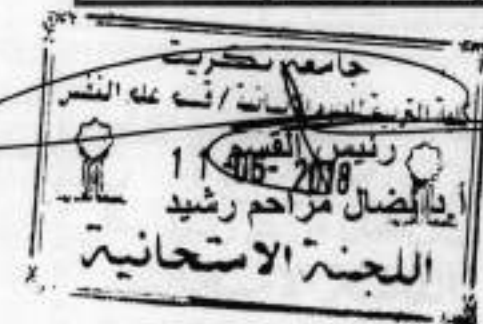 جامعة تكريت
كلية التربية للعلوم الإنسانية / قسم علم النفس
رئيس القسم
1 1 -05- 2018
أ.د نضال مزاحم رشيد
اللجنة الامتحانية